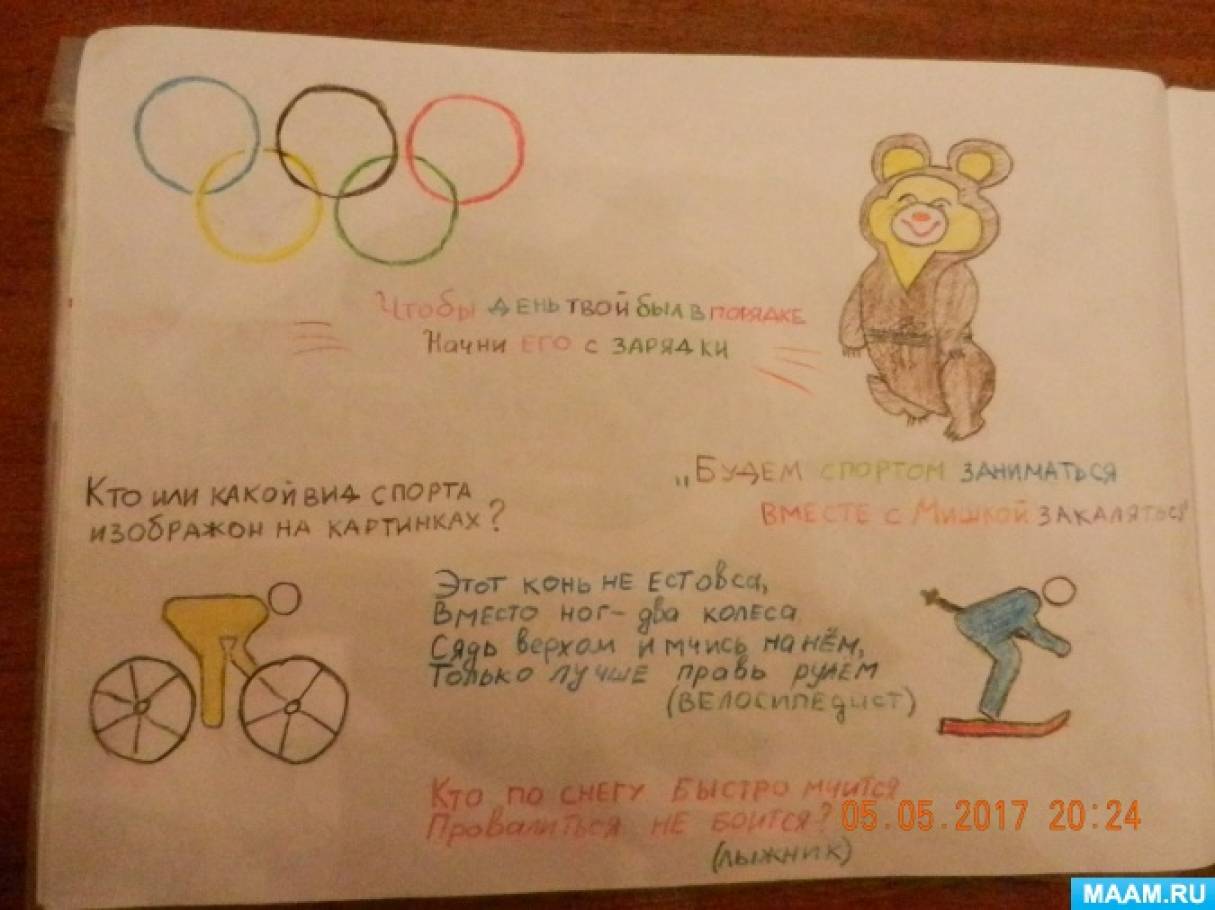 Чтобы день твой был в порядке
Начни его с зарядки
„Будем спортом заниматься
вместе с Мишкой закаляться"
Кто или какой вид спорта
изображон на картинках?
Этот конь не ест овса,
Вместо ног - два колеса
Сядь верхом и мчись на нём,
Только лучше правь рулем
(велосипедист)
Кто по снегу быстро мчится
Провалиться не боится?
(лыжник)
05.05.2017 20:24
MAAM.RU